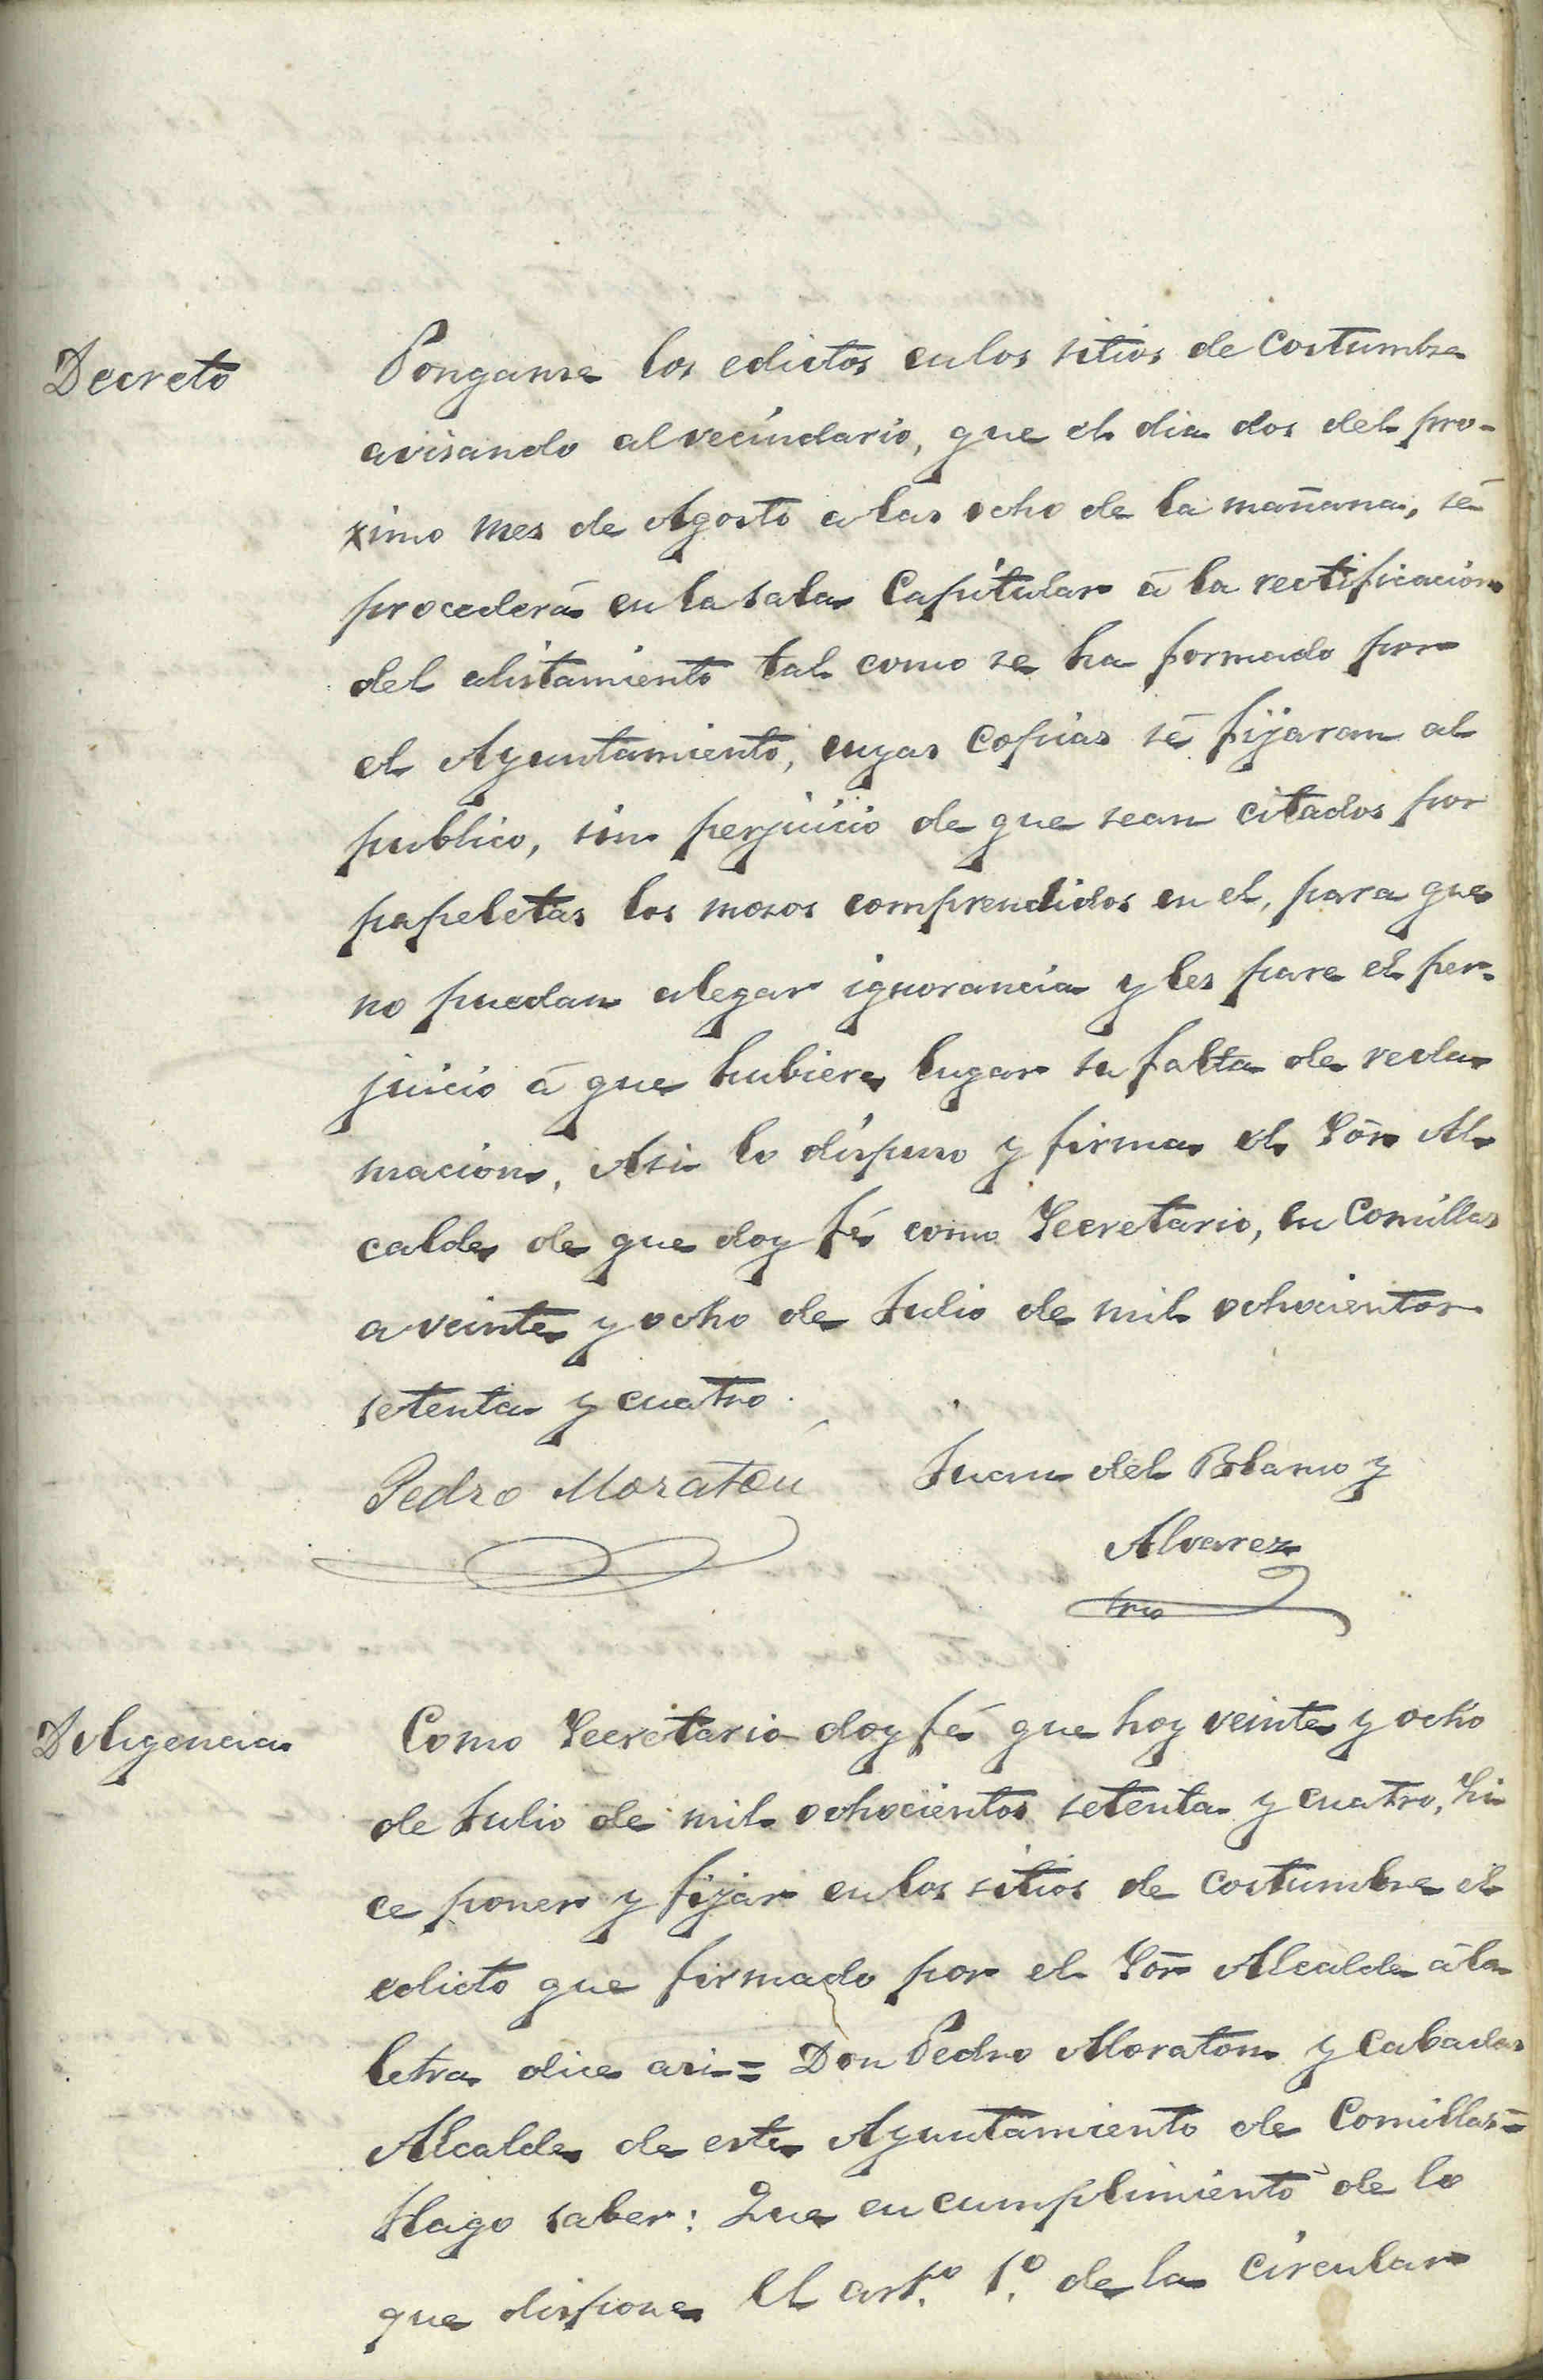 Decreto
Ponganse los edictos en los sitios de costumbre
avisando al vecindario, que el dia dos del pro-
ximo mes de Agosto a las ocho de la mañana, sé
procederá en la sala Capitular á la rectificacion
del alistamiento tal como se ha formado por
el Ayuntamiento, cuyas copias sé fijaran al
publico, sin perjuicio de que sean citados por
papeletas los mosos comprendidos en el, para que
no puedan alegar ignorancia y les pare el per-
juicio á que hubiere lugar su falta de recla
macion, Asi lo dispuso y firma el Sõr Al
calde de que doy fé como Secretario, en Comillas
a veinte y ocho de Julio de mil ochocientos
setenta y cuatro.
Pedro Moratón
Juan del Blanco y
Alvarez
Srio
Diligencia
Como Secretario doy fé que hoy veinte y ocho
de Julio de mil ochocientos setenta y cuatro, hi
ce poner y fijar en los sitios de costumbre el
edicto que firmado por el Sõr Alcalde á la
letra dice asi = Don Pedro Moraton y Cabadas
Alcalde de este Ayuntamiento de Comillas =
Hago saber: Que en cumplimiento de lo
que dispone el art.º 1.º de la circular